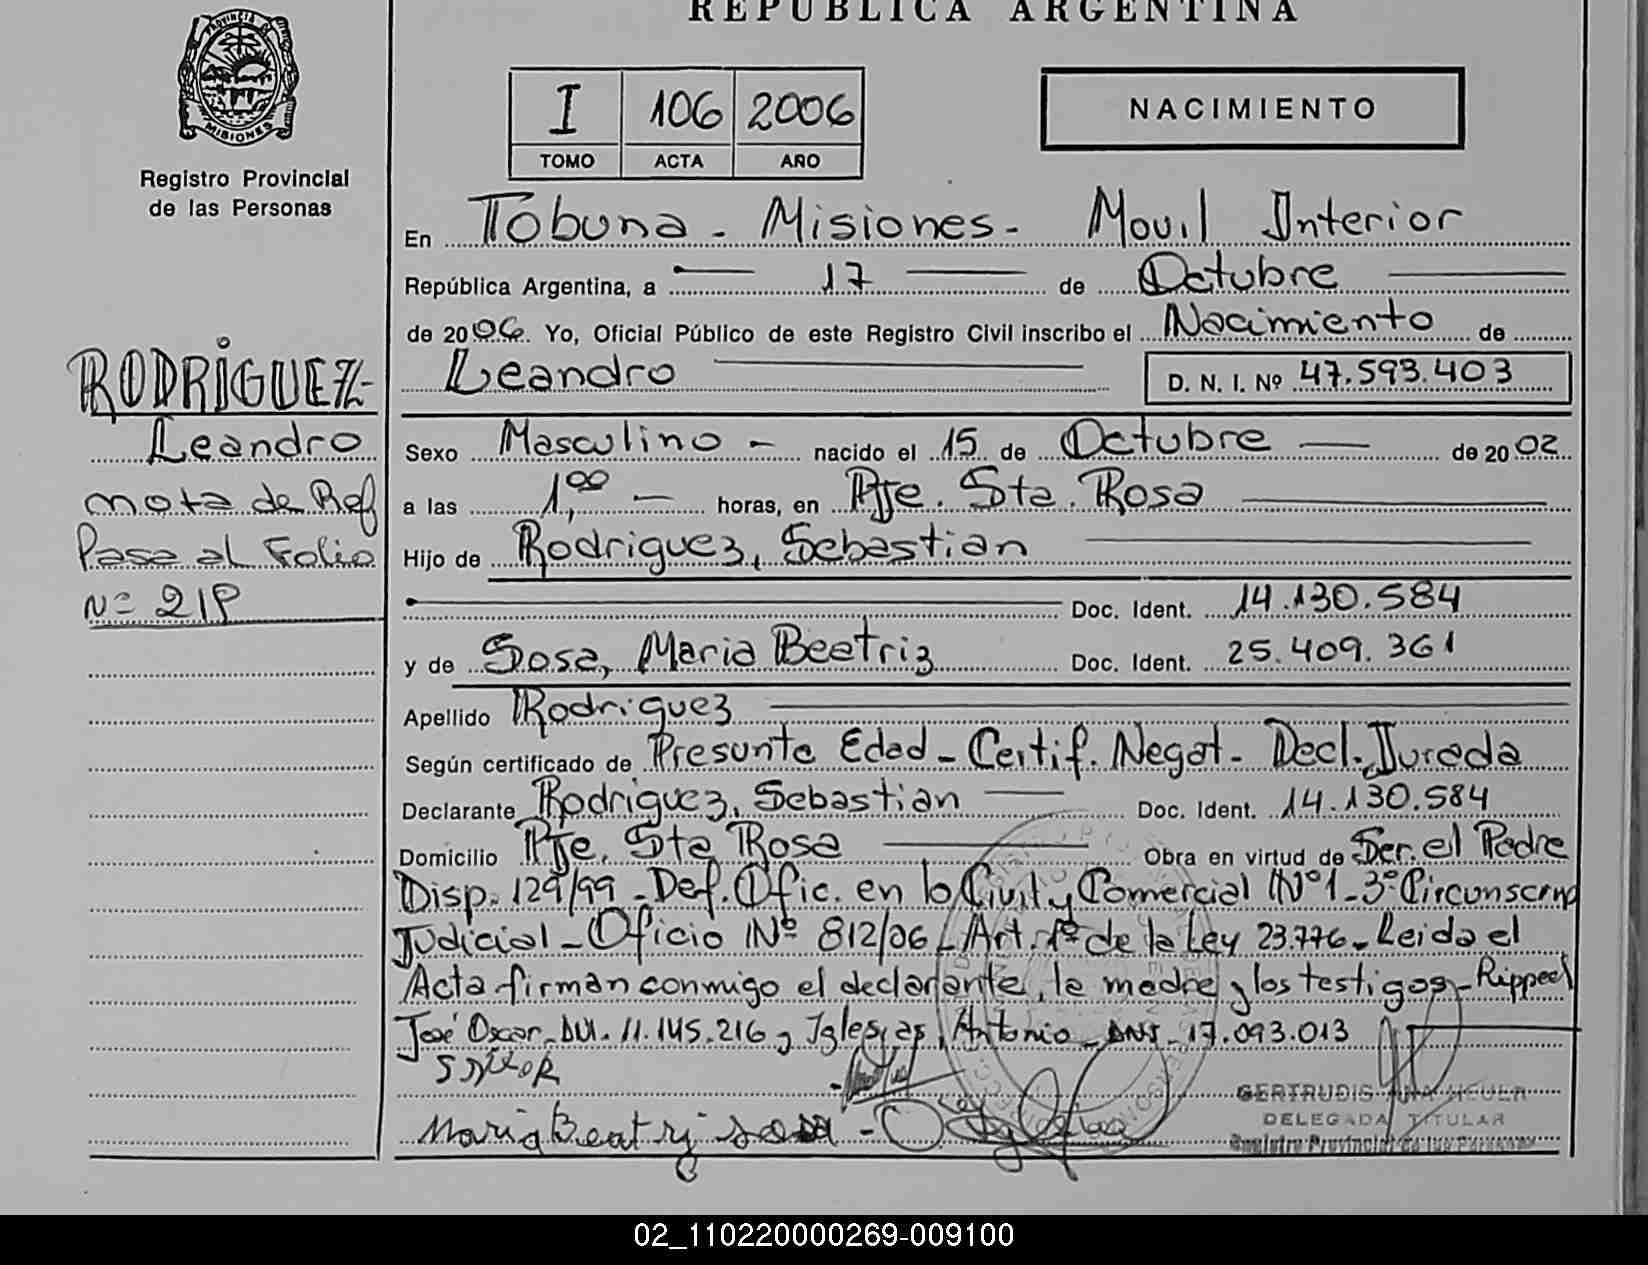 REPUBLICA ARGENTINA
PROVINCIA DE MISIONES
Registro Provincial
de las Personas
I 106 2006
TOMO ACTA AÑO
NACIMIENTO
En Tobuna - Misiones - Movil Interior
República Argentina, a 17 de Octubre
de 2006. Yo, Oficial Público de este Registro Civil inscribo el Nacimiento de
Leandro D. N. I. Nº 47.593.403
RODRÍGUEZ-
Leandro
nota de Ref
Pasa al Folio
Nº 219
Sexo Masculino - nacido el 15 de Octubre de 2002
a las 1,00 - horas, en Pje. Sta. Rosa
Hijo de Rodriguez, Sebastian
Doc. Ident. 14.130.584
y de Sosa, Maria Beatriz Doc. Ident. 25.409.361
Apellido Rodriguez
Según certificado de Presunta Edad - Certif. Negat - Decl. Jurada
Declarante Rodriguez, Sebastian Doc. Ident. 14.130.584
Domicilio Pje. Sta Rosa Obra en virtud de Ser el Padre
Disp. 129/99 - Def. Ofic. en lo Civil y Comercial Nº 1 - 3º Circunscrip
Judicial - Oficio Nº 812/06 - Art. 1º de la Ley 23.776 - Leida el
Acta firman conmigo el declarante, la madre y los testigos - Rippel
José Oscar - DNI. 11.145.216 y Iglesias, Antonio - DNI - 17.093.013
Maria Beatriz Sosa -
GERTRUDIS
DELEGADA TITULAR
Registro Provincial de las Personas
02_110220000269-009100